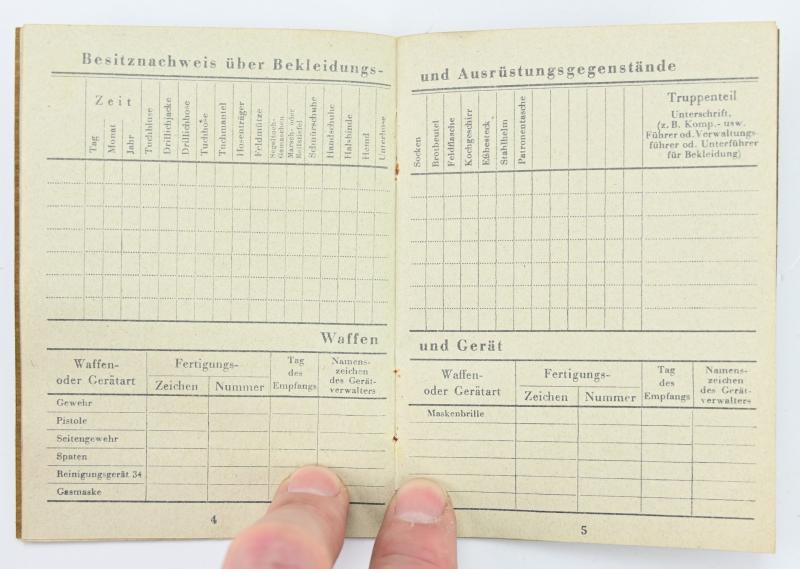 Besitznachweis über Bekleidungs-
Zeit
Tag
Monat
Jahr
Tuchbluse
Drillichjacke
Drillichhose
Tuchhose
Tuchmantel
Hosenträger
Feldmütze
Segeltuch-
Gamaschen
Marsch- oder
Reitstiefel
Schnürschuhe
Handschuhe
Halsbinde
Hemd
Unterhose
Waffen
Waffen-
oder Gerätart
Fertigungs-
Zeichen
Nummer
Tag
des
Empfangs
Namens-
zeichen
des Gerät-
verwalters
Gewehr
Pistole
Seitengewehr
Spaten
Reinigungsgerät 34
Gasmaske
4
und Ausrüstungsgegenstände
Socken
Brotbeutel
Feldflasche
Kochgeschirr
Eßbesteck
Stahlhelm
Patronentasche
Truppenteil
Unterschrift,
(z. B. Komp.- usw.
Führer od. Verwaltungs-
führer od. Unterführer
für Bekleidung)
und Gerät
Waffen-
oder Gerätart
Fertigungs-
Zeichen
Nummer
Tag
des
Empfangs
Namens-
zeichen
des Gerät-
verwalters
Maskenbrille
5